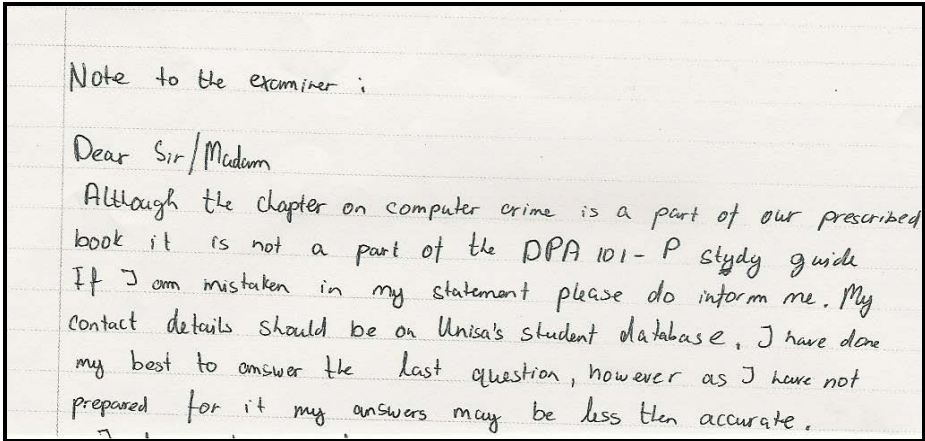 Note to the examiner :
Dear Sir/Madam
Although the chapter on computer crime is a part of our prescribed
book it is not a part of the DPA 101-P stydy guide
If I am mistaken in my statement please do inform me. My
contact details should be on Unisa's student database. I have done
my best to answer the last question, however as I have not
prepared for it my answers may be less then accurate.